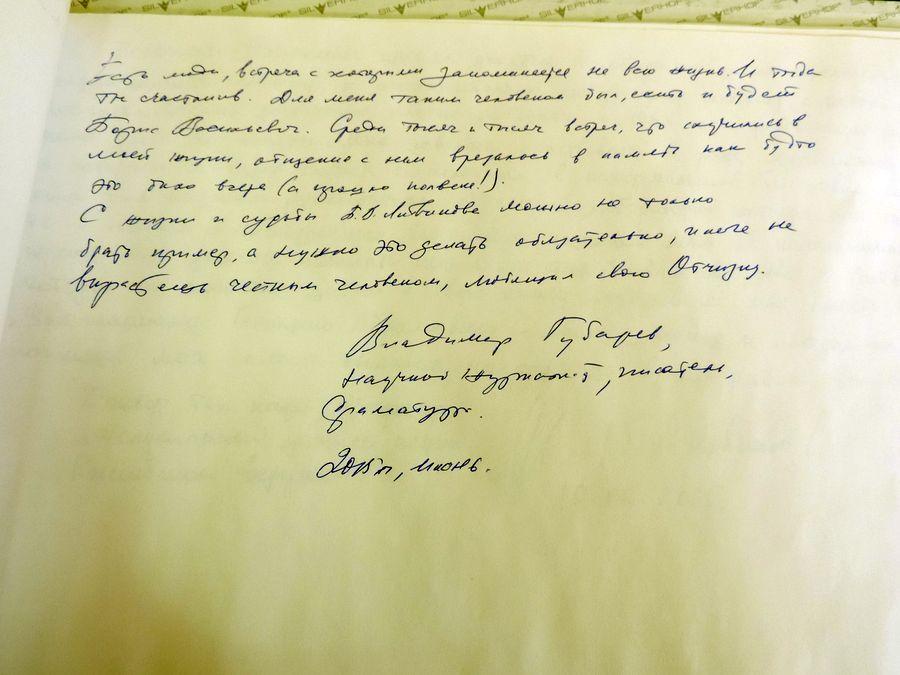 SILVERHOF SILVERHOF SILVERHOF SILVERHOF SILVERHOF
Есть люди, встреча с которыми запоминается на всю жизнь. И тогда
ты счастлив. Для меня таким человеком был, есть и будет
Борис Васильевич. Среди тысяч и тысяч встреч, что случились в
моей жизни, общение с ним врезалось в память как будто
это было вчера (а прошло полвека!).
С жизни и судьбы Б.В. Литвинова можно не только
брать пример, а нужно это делать обязательно, иначе не
вырастешь честным человеком, любящим свою Отчизну.
Владимир Губарев,
научный журналист, писатель,
драматург.
июнь.